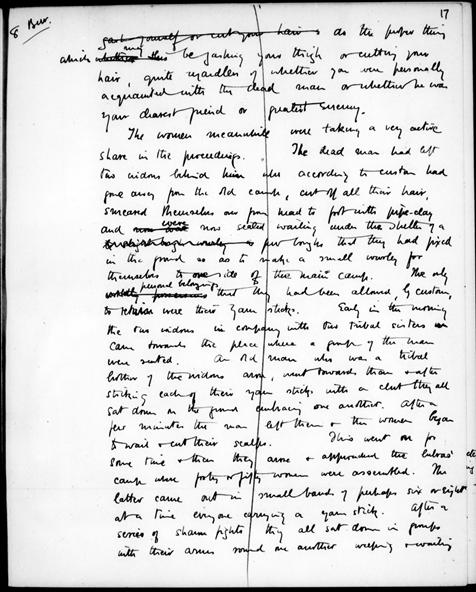 17
8 Bur.
gash yourself or cut your hair is do the proper thing
which may be gashing your thigh or cutting your
hair, quite regardless of whether you were personally
acquainted with the dead man or whether he was
your dearest friend or greatest enemy.
The women meanwhile were taking a very active
share in the proceedings. The dead man had left
two widows behind him who according to custom had
gone away from the old camp, cut off all their hair,
smeared themselves over from head to foot with pipe-clay
and were now seated wailing under the shelter of a
few boughs that they had fixed
in the ground so as to make a small wurley for
themselves to one side of the main camp. The only
personal belongings that they had been allowed, by custom,
to retain were their yam sticks. Early in the morning
the two widows in company with two tribal sisters
came towards the place where a group of the men
were seated. An old man who was a tribal
brother of the widows arose, went towards them & after
sticking each of their yam sticks with a club they all
sat down on the ground embracing one another. After a
few minutes the man left them & the women began
to wail & cut their scalps. This went on for
some time & then they arose & approached the lubras'
camp where forty or fifty women were assembled. The
latter came out in small bands of perhaps six or eight
at a time everyone carrying a yam stick. After a
series of sham fights they all sat down in groups
with their arms round one another weeping & wailing